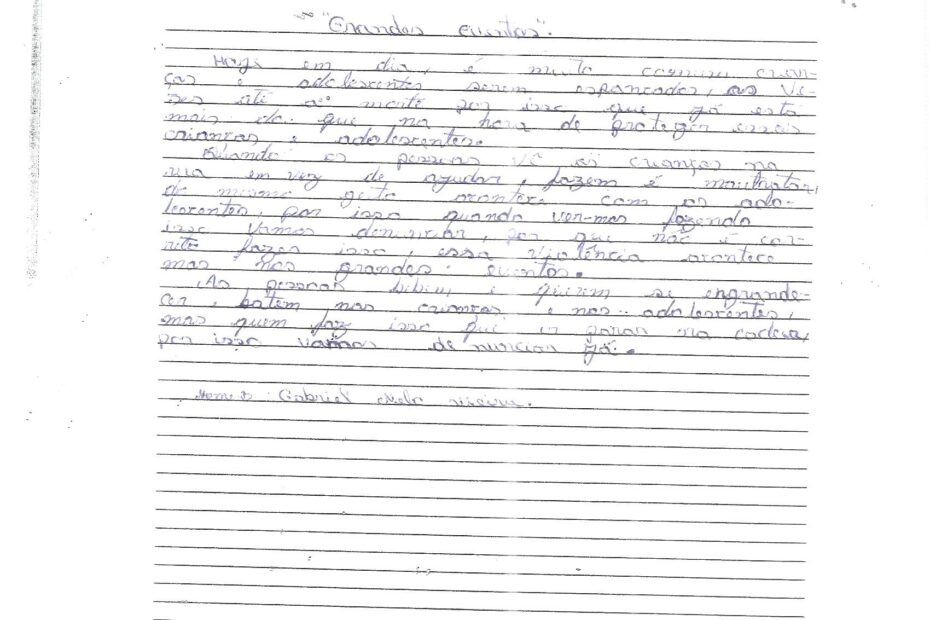 "Grandes eventos".
Hoje em dia, é muito comum crian-
ças e adolescentes serem espancados, as ve-
zes até a morte por isso que já está
mais do que na hora de proteger essas
crianças e adolescentes.
Quando as pessoas vê as crianças na
rua em vez de ajudar, fazem é maltratar,
do mesmo geito acontece com os ado-
lescentes, por isso quando ver-mos fazendo
isso vamos denunciar, por que não é cor-
reto fazer isso, essa violência acontece
mas nos grandes eventos.
As pessoas bebem e querem se engrande-
cer, batem nas crianças e nos adolescentes,
mas quem faz isso que ir parar na cadeia,
por isso vamos de nunciar já.
Nome: Gabriel Melo